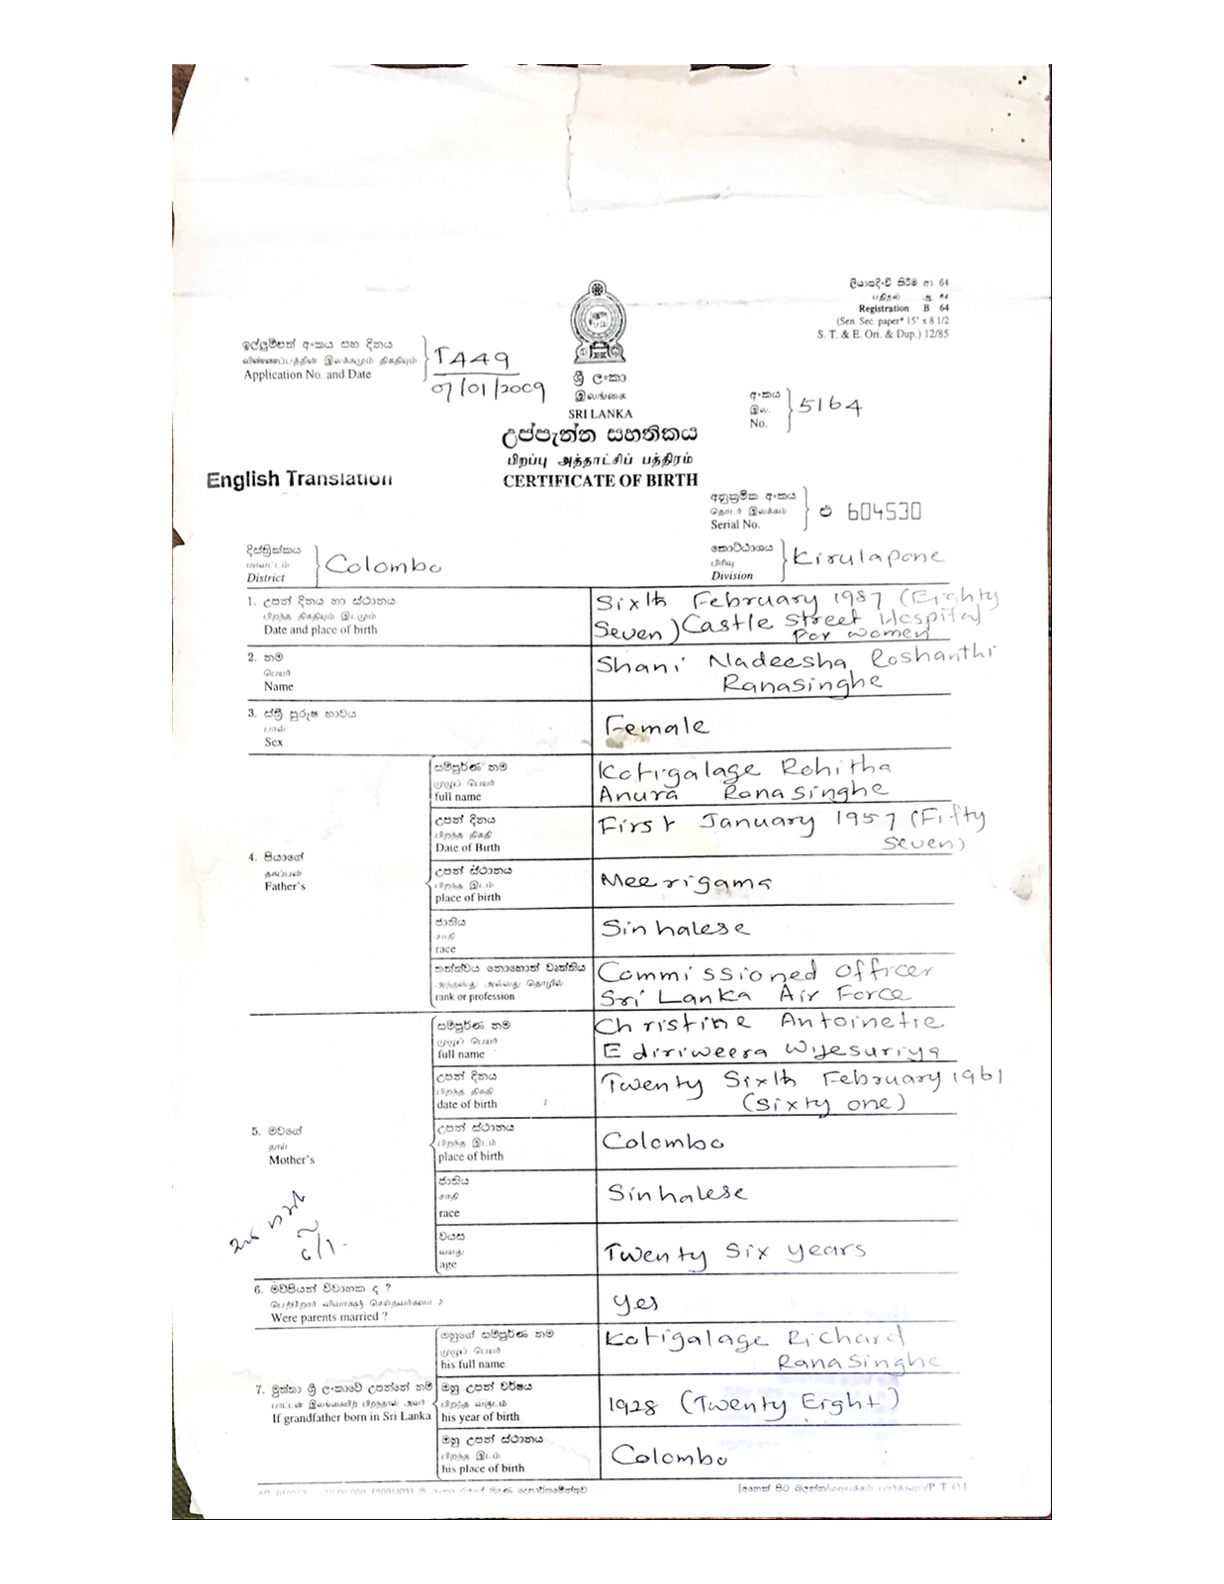 ලියාපදිංචි කිරීම ආ 64
பதிதல் ஆ. 64
Registration B 64
(Sen. Sec. paper* 15" x 8 1/2
S. T. & E. Ori. & Dup.) 12/85
ඉල්ලුම්පත් අංකය සහ දිනය
விண்ணப்பத்தின் இலக்கமும் திகதியும்
Application No. and Date
T449
07/01/2009
ශ්‍රී ලංකා
இலங்கை
SRI LANKA
අංකය
இல.
No.
5164
උප්පැන්න සහතිකය
பிறப்பு அத்தாட்சிப் பத்திரம்
English Translation
CERTIFICATE OF BIRTH
අනුක්‍රමික අංකය
தொடர் இலக்கம்
Serial No.
එ 604530
දිස්ත්‍රික්කය
மாவட்டம்
District
Colombo
කොට්ඨාශය
பிரிவு
Division
Kirulapone
1. උපන් දිනය හා ස්ථානය
பிறந்த திகதியும் இடமும்
Date and place of birth
Sixth February 1987 (Eighty
Seven) Castle Street Hospital
For women
2. නම
பெயர்
Name
Shani Nadeesha Roshanthi
Ranasinghe
3. ස්ත්‍රී පුරුෂ භාවය
பால்
Sex
Female
4. පියාගේ
தகப்பன்
Father's
සම්පූර්ණ නම
முழுப் பெயர்
full name
Kotigalage Rohitha
Anura Ranasinghe
උපන් දිනය
பிறந்த திகதி
Date of Birth
First January 1957 (Fifty
Seven)
උපන් ස්ථානය
பிறந்த இடம்
place of birth
Meerigama
ජාතිය
சாதி
race
Sinhalese
තත්ත්වය නොහොත් වෘත්තිය
அந்தஸ்து அல்லது தொழில்
rank or profession
Commissioned Officer
Sri Lanka Air Force
5. මවගේ
தாய்
Mother's
සම්පූර්ණ නම
முழுப் பெயர்
full name
Christine Antoinette
Ediriweera Wijesuriya
උපන් දිනය
பிறந்த திகதி
date of birth
Twenty Sixth February 1961
(Sixty one)
උපන් ස්ථානය
பிறந்த இடம்
place of birth
Colombo
ජාතිය
சாதி
race
Sinhalese
වයස
வயது
age
Twenty Six years
6. මව්පියන් විවාහක ද ?
பெற்றோர் விவாகஞ் செய்தவர்களா ?
Were parents married ?
yes
7. මුත්තා ශ්‍රී ලංකාවේ උපන්නේ නම්
பாட்டன் இலங்கையிற் பிறந்தால் அவர்
If grandfather born in Sri Lanka
ඔහුගේ සම්පූර්ණ නම
முழுப் பெயர்
his full name
Kotigalage Richard
Ranasinghe
ඔහු උපන් වර්ෂය
பிறந்த வருடம்
his year of birth
1928 (Twenty Eight)
ඔහු උපන් ස්ථානය
பிறந்த இடம்
his place of birth
Colombo